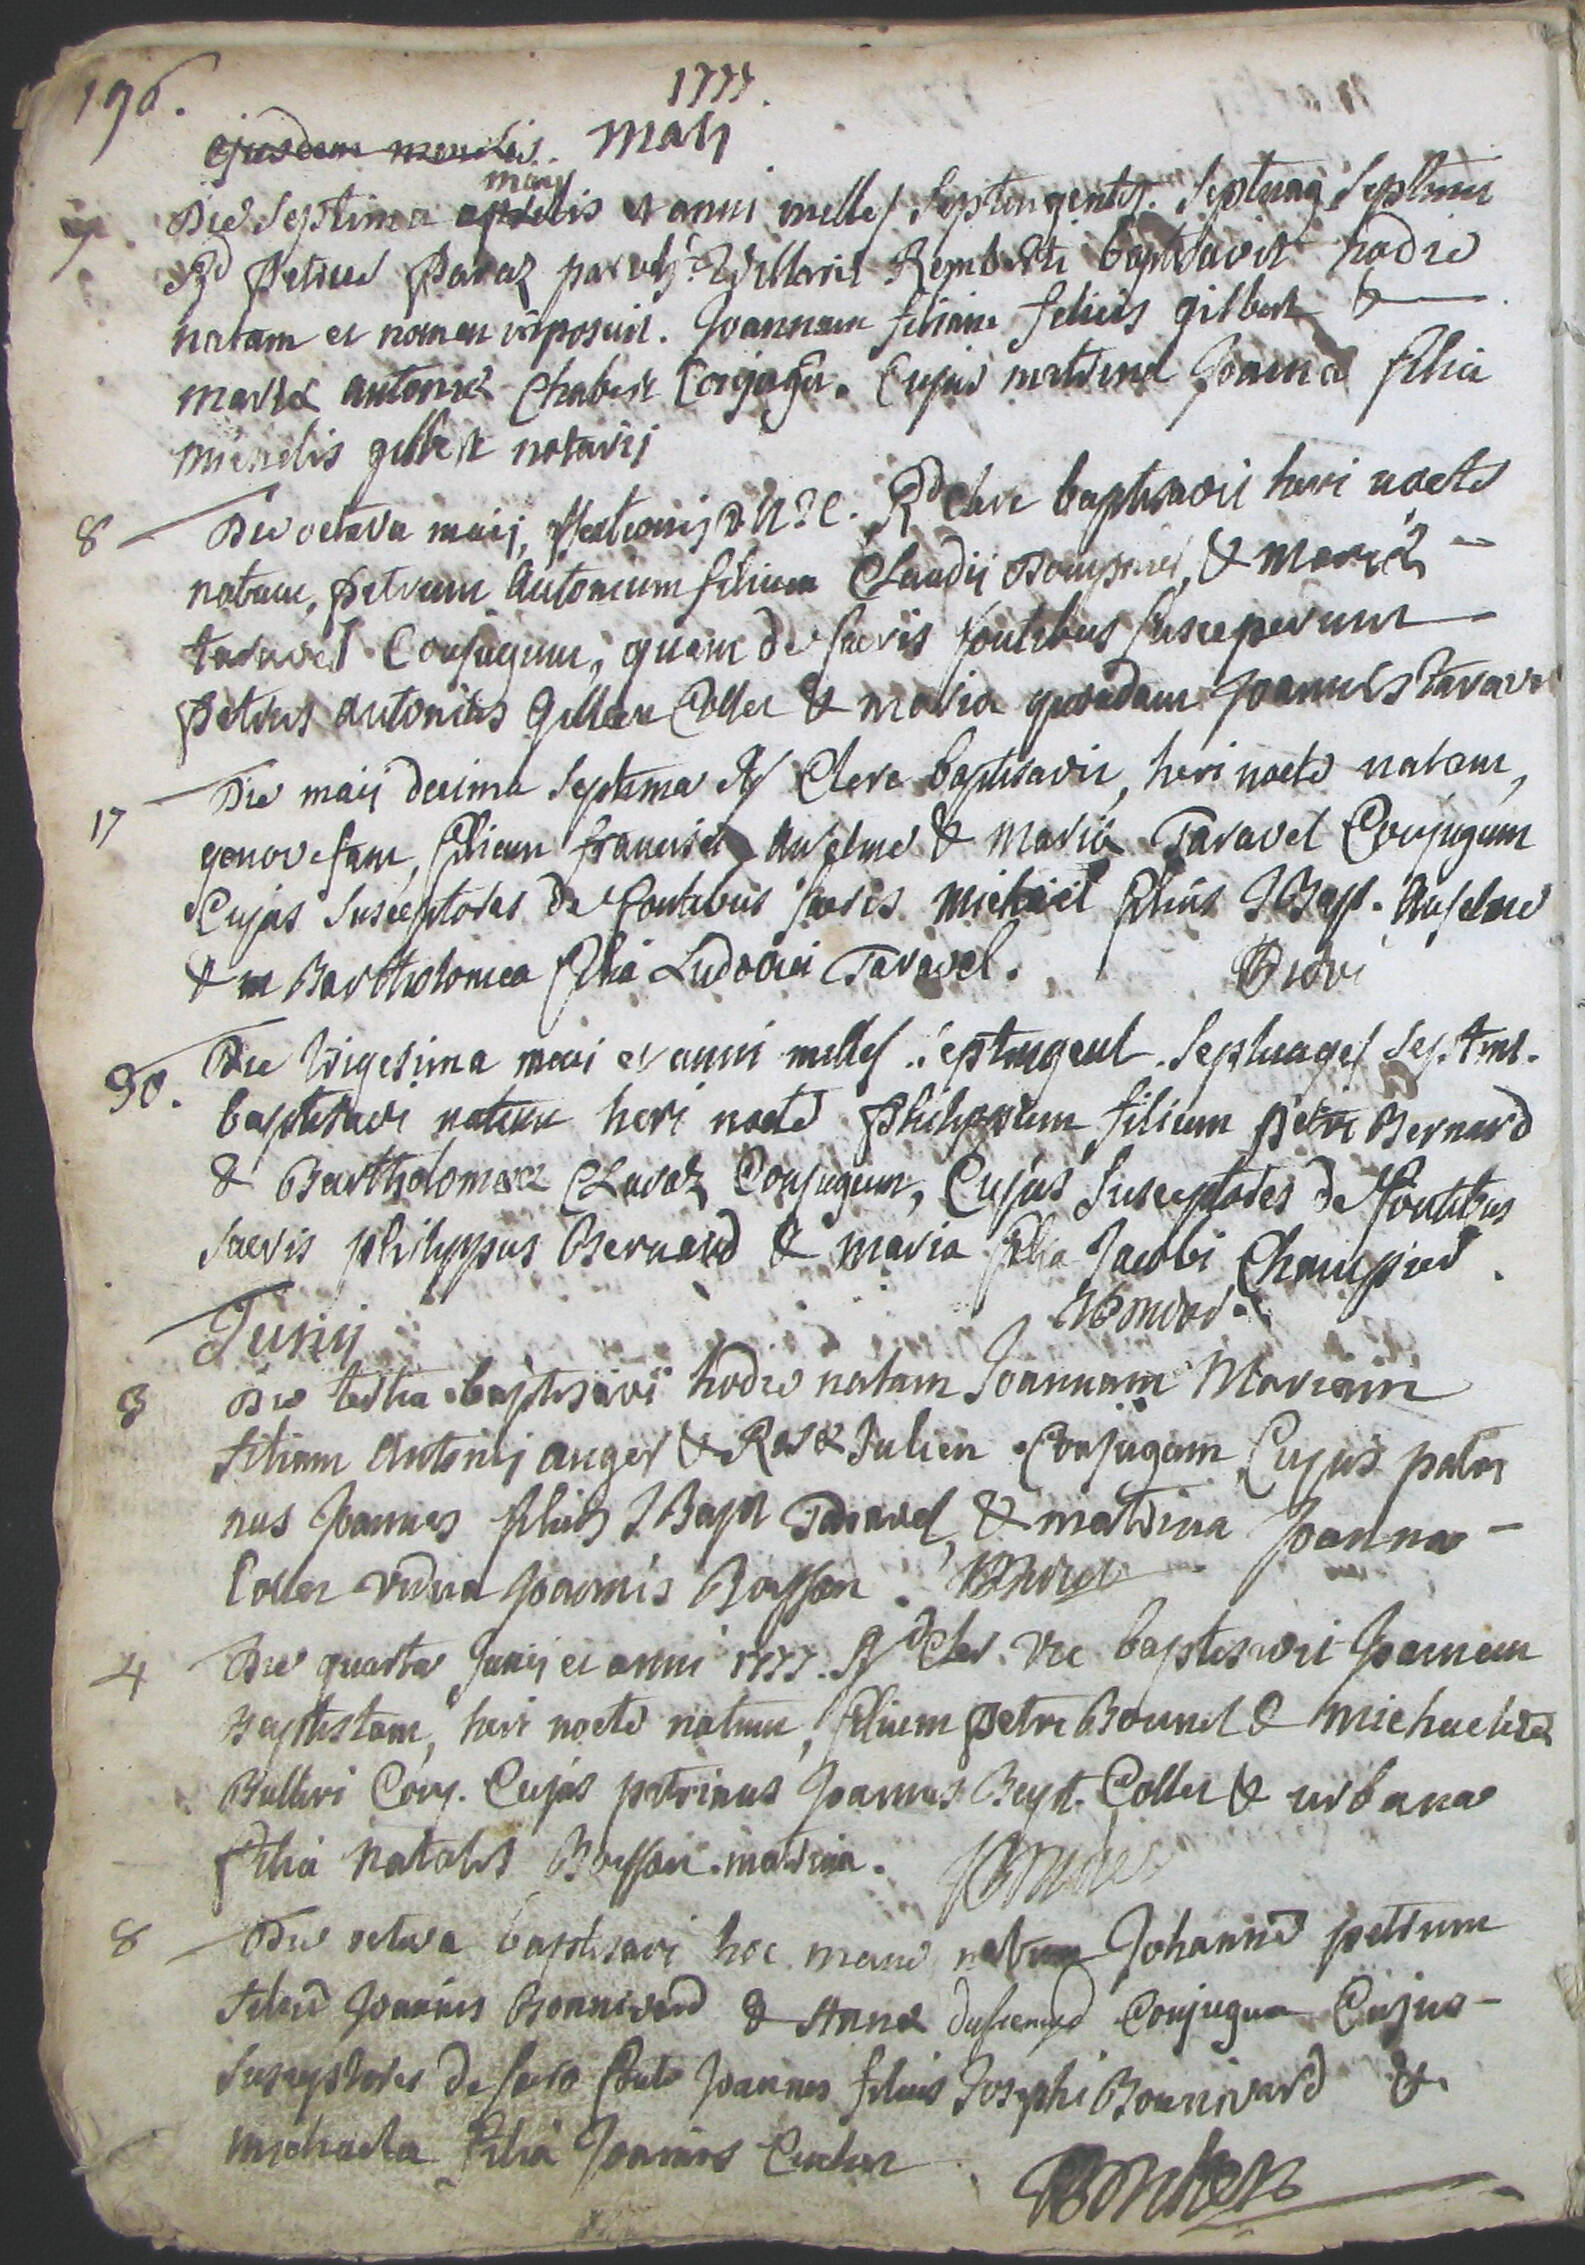 196.
1777.
ejusdem mensis. Maij
maij
7. Die Septima aprilis et anni milles Septingentes. Septuag Septimi
Rd petrus paraz paroch. Villaris Remberti baptisavit hodie
natam et nomen imposuit. Joannam filiam felicis gilbert &
mariæ antoniæ Chabert Conjugu. Cujus matrina Joanna filia
michelis gilbert notarij
8 Die octava maij, Rd Clere baptisavit heri nocte
natum, petrum Antonium filium Claudij & mariæ
taravel Conjugum, quem de sacris fontibus susceperunt
petrus antonius Coller & maria quondam Joannis Taravel
17 Die maij decima septima Rd Clere baptisavit, heri nocte natam,
genovefam, filiam francisci Anselme & Mariæ Taravel Conjugum
Cujus susceptores de fontibus sacris michael filius J Bapt. Anselme
& m Bartholomea filia Ludovici Taravel.
30. Die trigesima maii et anni milles septingent. septuages septimi.
baptisavi natum heri nocte philippum filium petri Bernard
& Bartholomeæ Claraz Conjugum, Cujus susceptores de fontibus
sacris philippus Bernard & maria filia Jacobi Champied.
Junij
3 Die tertia baptisavi hodie natam Joannam Mariam
filiam Antonij anger & Rosæ Julien Conjugum Cujus patri
nus Joannes filius J Bapt Taravel, & matrina Joanna
Coller vidua Joannis Bosson.
4 Die quarta Junij et anni 1777. Rd Cler. vic baptisavit Joannem
Baptistam, heri nocte natum, filium petri Bounet & michaelæ
Bulliri Conj. Cujus patrinus Joannes Bapt. Coller & urbana
filia natalis Bosson matrina.
8 Die octava baptisavi hoc mane natum Johanne petrum
filiu Joannis Bonnivard & Annæ Conjugum Cujus
susceptores de sacro fonte Joannes filius Josephi Bonnivard &
michaela filia Joannis